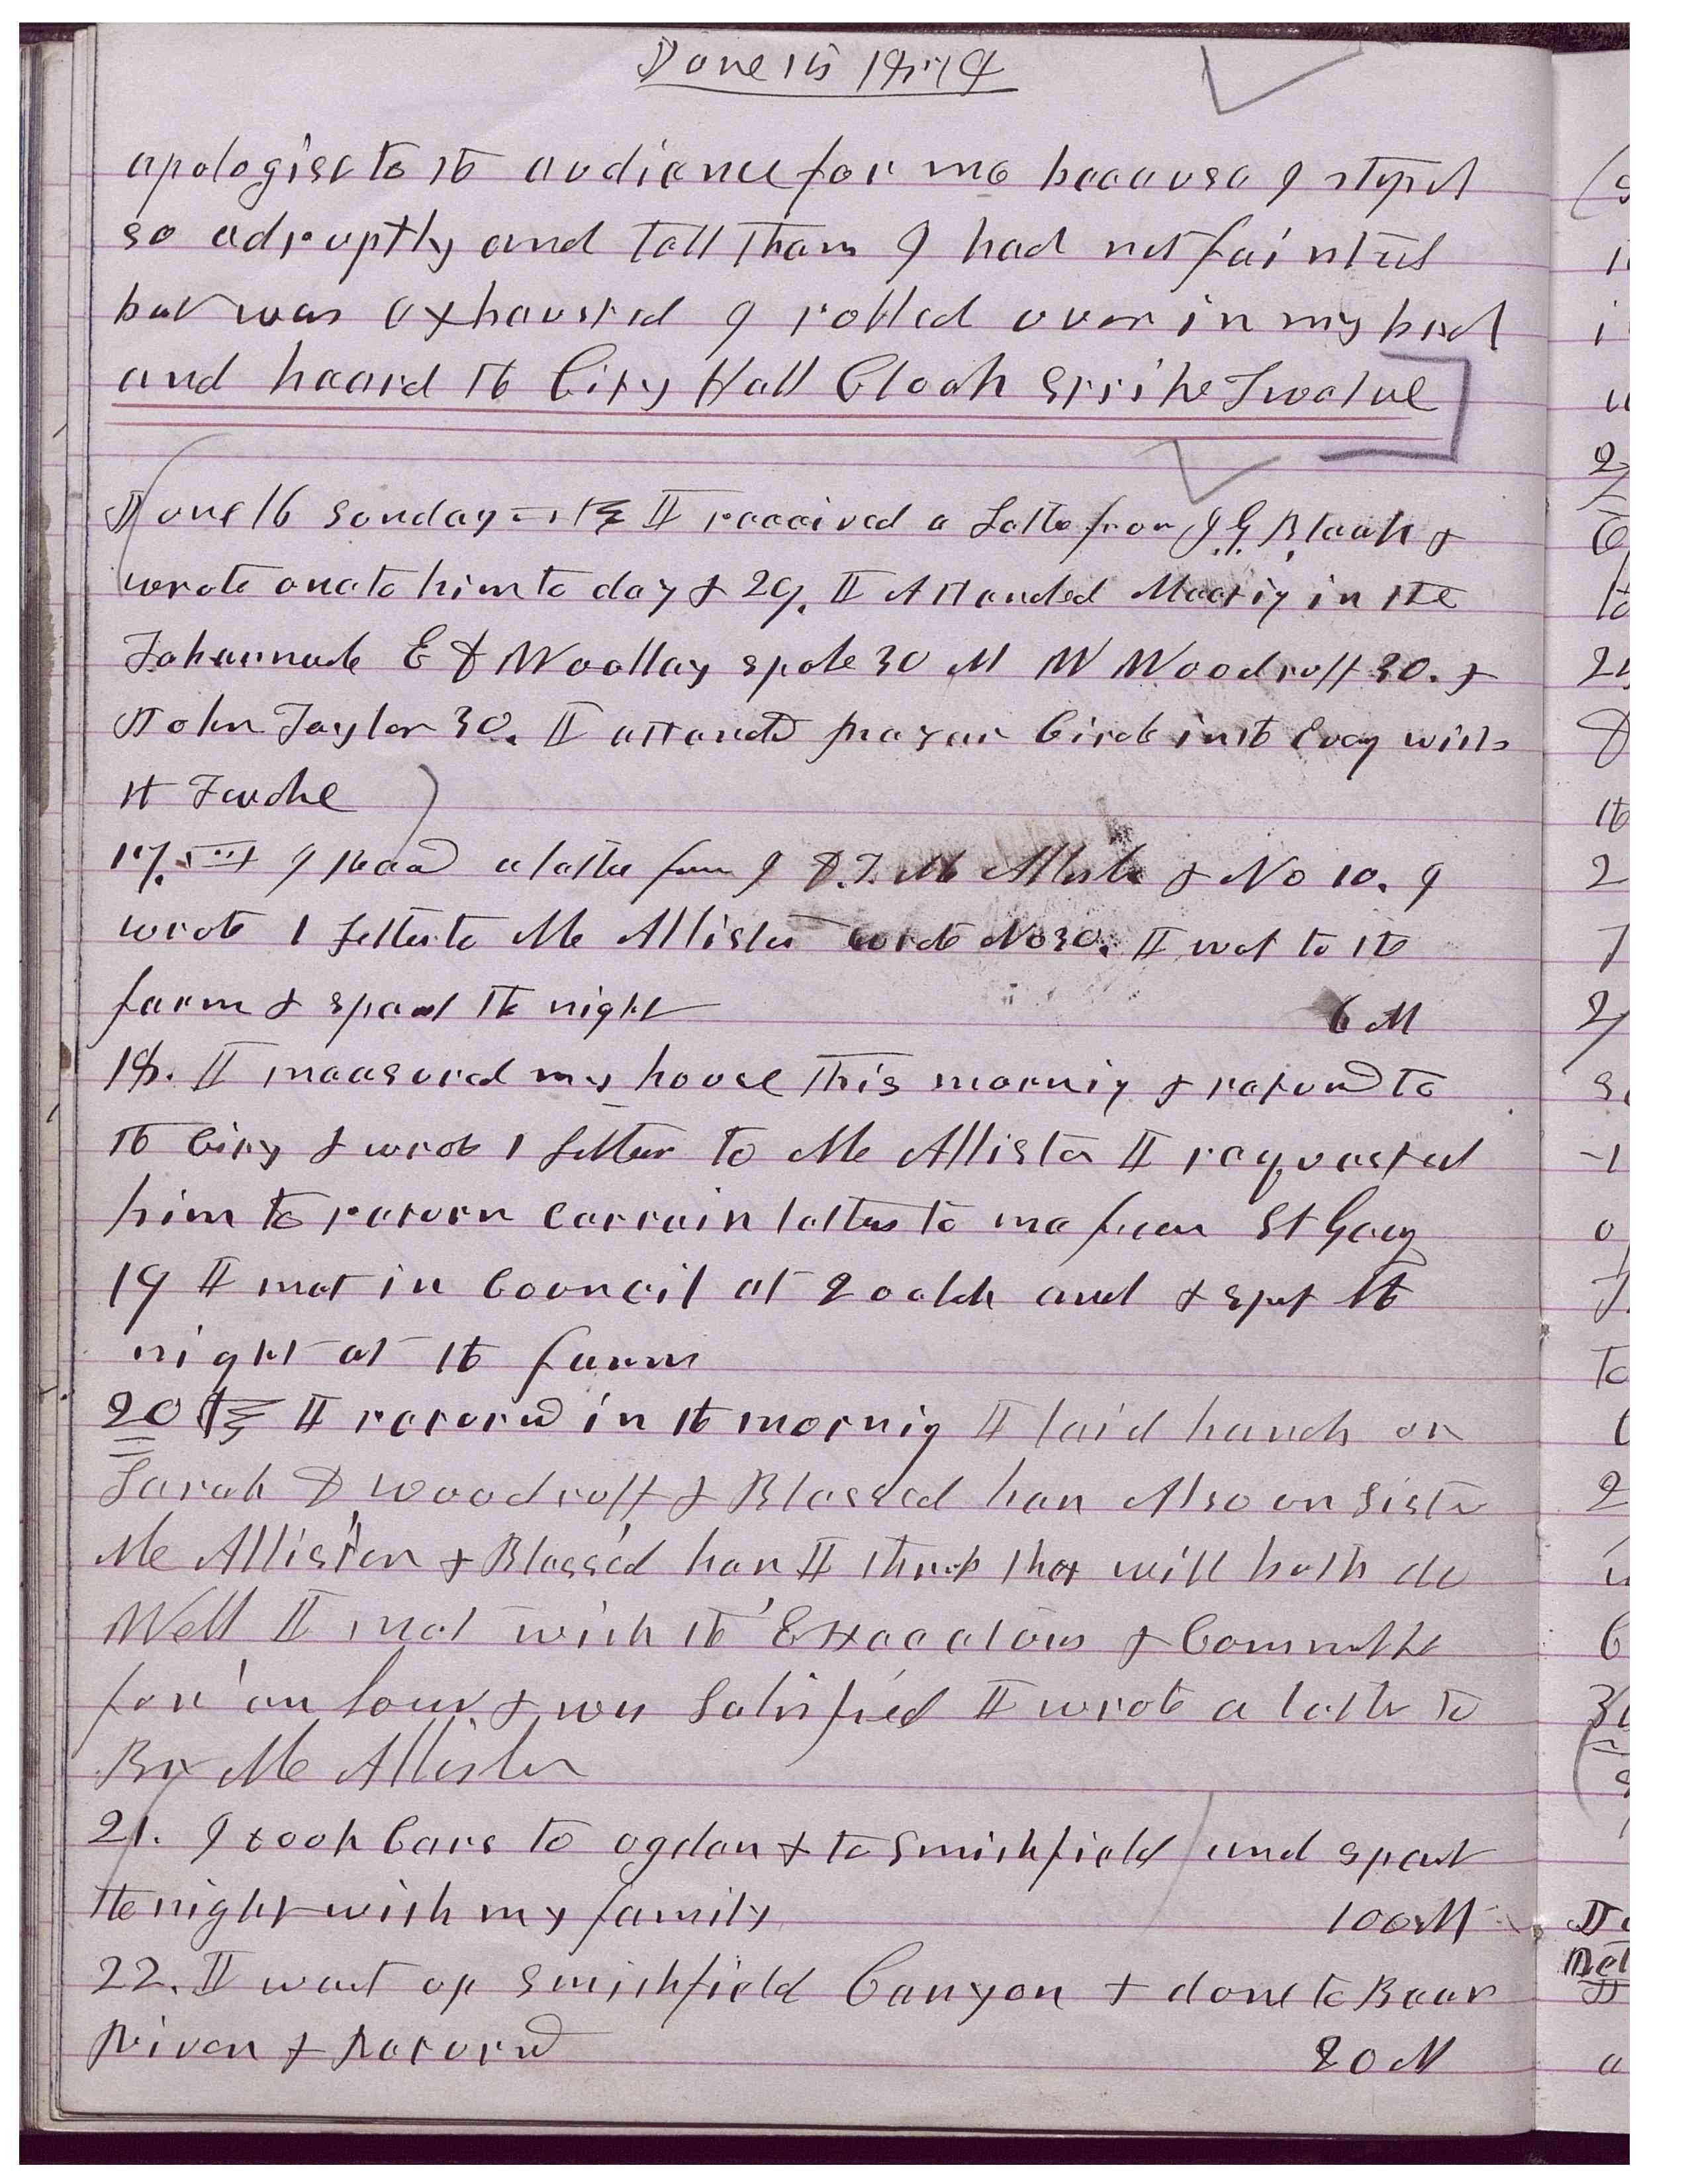 June 15 1878
apologise to the audience for me because I stopt
so adruptly and tell them I had not fainted
but was exhausted I rolled over in my bed
and heard the City Hall Clock Strike Twelve
June 16 Sunday I received a Letter from J G Bleak &
wrote one to him to day & 29. I Attended Meetig in the
Tabernacle E D Woolley spoke 30 M W Woodruff 30. &
John Taylor 30. I attend prayer Circle in the Eveng with
the Twelve
17. I Recd a letter from J D.T. Mc Allister & No 10. I
wrote 1 Letter to Mc Allister wrote No 30. I wet to the
farm & spent the night 6 M
18. I measured my house this mornig & returnd to
the City & wrote 1 Letter to Mc Allister I requested
him to return certain letters to me from St Georg
19 I met in Council at 2 oclok and & spet the
night at the farm
20 I returnd in the mornig I laid hands on
Sarah D Woodruff & Blessed her Also on Sister
Mc Allister & Blessed her I think they will both do
Well I met with the Executors & Committee
for an hour & was Satisfied I wrote a letter to
Br Mc Allister
21. I took Cars to ogden & to Smithfield and spent
the night with my family 100 M
22. I went up Smithfield Canyon & down to Bear
River & Returnd 20 M